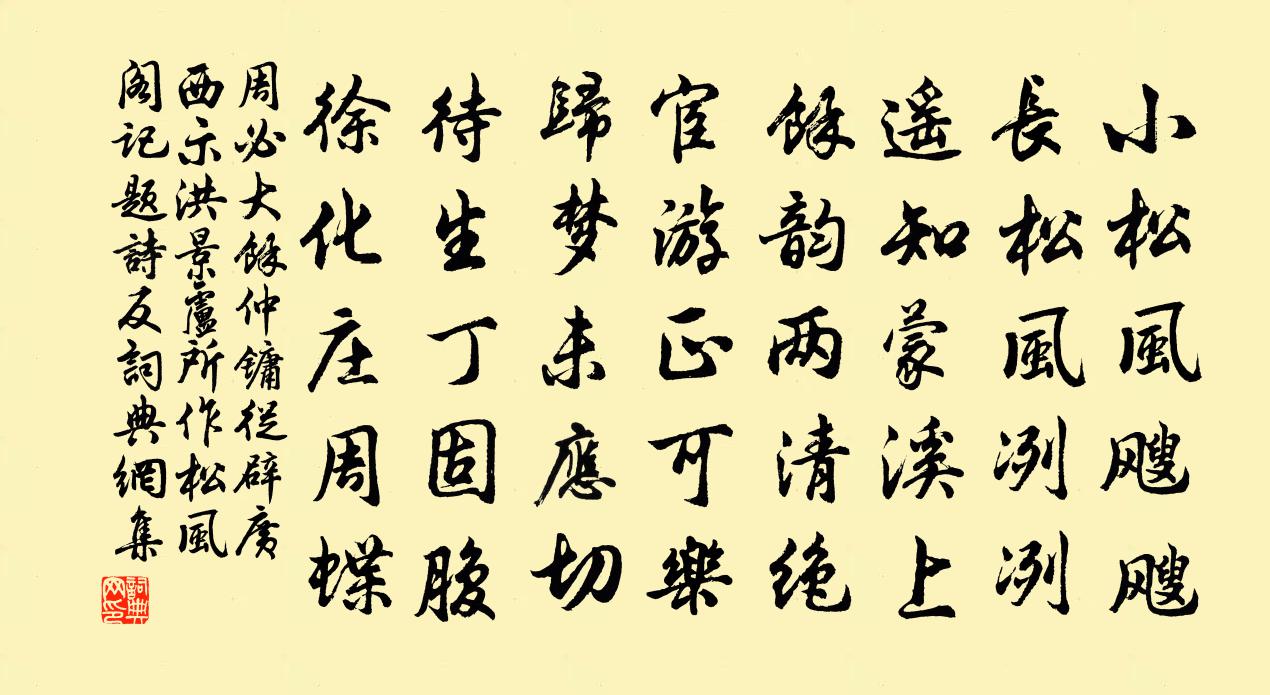 小松風飕飕
長松風冽冽
遥知蒙溪上
餘韵两清绝
宦游正可樂
歸梦未應切
待生丁固腹
徐化庄周蝶
周必大餘仲鏞從辟廣
西示洪景盧所作松風
阁记题詩反詞典網集
詞典
网印